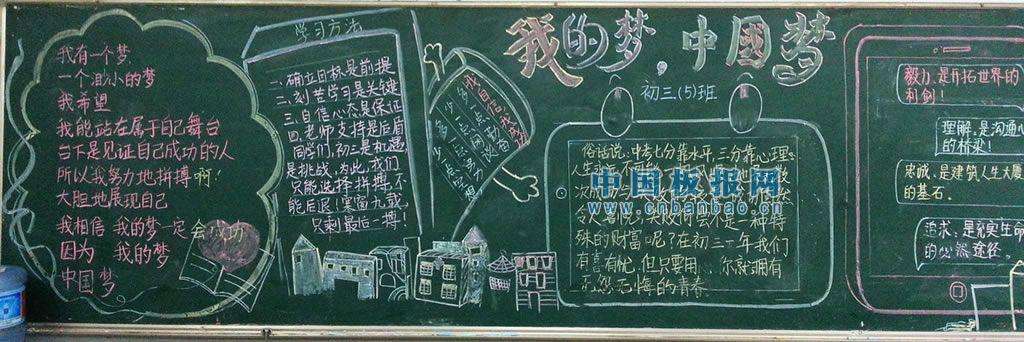 我有一个梦
一个渺小的梦
我希望
我能站在属于自己舞台
台下是见证自己成功的人
所以我努力地拼搏啊!
大胆地展现自己
我相信 我的梦一定会成功
因为 我的梦
中国梦
学习方法
一、确立目标是前提
二、刻苦学习是关键
三、自信心态是保证
四、老师支持是后盾
同学们,初三是机遇
是挑战,为此,我们
只能选择拼搏,不
能后退!寒窗九载,
只剩最后一搏!
我自信,我成功
我的梦,中国梦
初三(5)班
俗话说:中考七分靠水平,三分靠心理。
人生
殊的财富呢?在初三一年我们
有喜有忧,但只要 你就拥有
无怨无悔的青春
中国板报网
www.cnbanbao.cn
毅力,是开拓世界的
利剑!
理解,是沟通心
的桥梁!
忠诚,是建筑人生大厦
的基石.
追求,是充实生命
的必然途径。